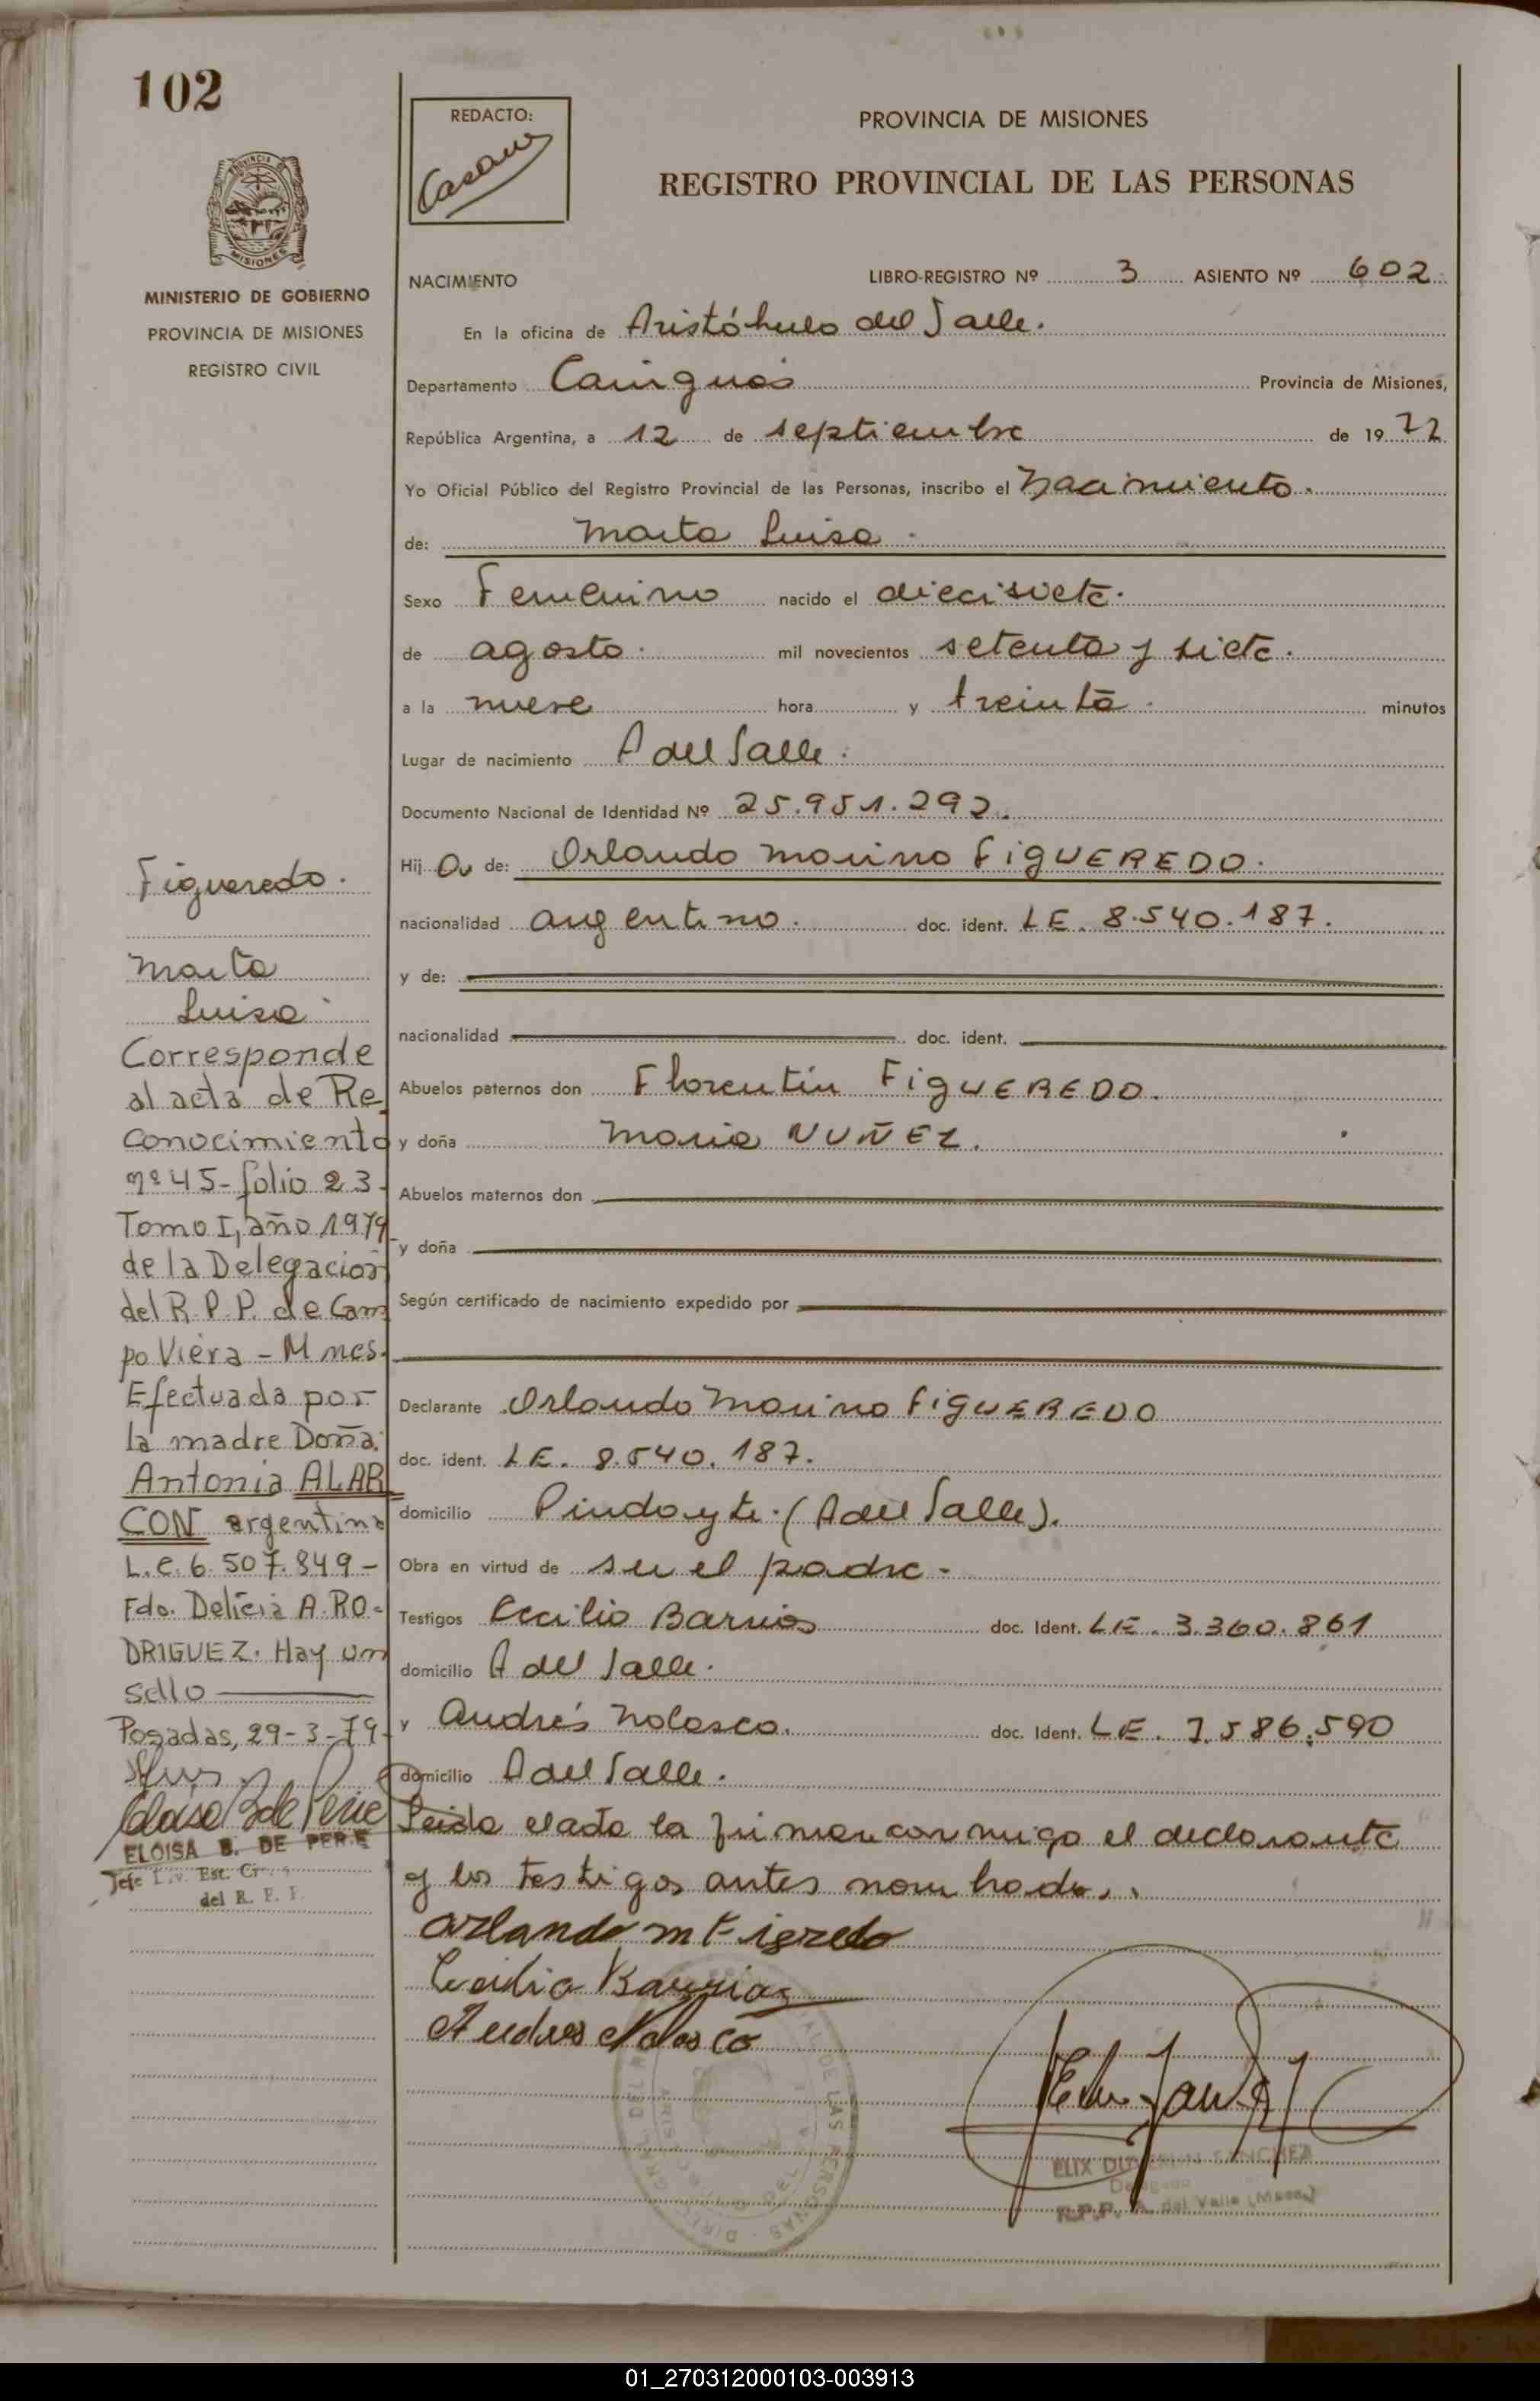 102
MINISTERIO DE GOBIERNO
PROVINCIA DE MISIONES
REGISTRO CIVIL
Figueredo.
Marta
Luisa
Corresponde
al acta de Re_
conocimiento
nº 45- folio 23-
Tomo I, año 1979
de la Delegación
del R.P.P. de Cam
po Viera - Mnes.
Efectuada por
la madre Doña:
Antonia ALAR
CON argentina
L.C. 6.507.849-
Fdo. Delicia A. RO-
DRIGUEZ. Hay un
sello
Posadas, 29-3-79
ELOISA B. DE PERIE
del R. P. P.
REDACTO:
PROVINCIA DE MISIONES
REGISTRO PROVINCIAL DE LAS PERSONAS
NACIMIENTO LIBRO-REGISTRO Nº 3 ASIENTO Nº 602
En la oficina de Aristóbulo del Valle.
Departamento Cainguás Provincia de Misiones,
República Argentina, a 12 de septiembre de 1977
Yo Oficial Público del Registro Provincial de las Personas, inscribo el Nacimiento.
de: Marta Luisa.
Sexo Femenino nacido el diecisiete.
de agosto. mil novecientos setenta y siete.
a la nueve hora y treinta. minutos
Lugar de nacimiento A del Valle.
Documento Nacional de Identidad Nº 25.951.292.
Hij a de: Orlando Marino FIGUEREDO.
nacionalidad argentino. doc. ident. LE. 8.540.187.
y de:
nacionalidad doc. ident.
Abuelos paternos don Florentín FIGUEREDO.
y doña Maria NUÑEZ.
Abuelos maternos don
y doña
Según certificado de nacimiento expedido por
Declarante Orlando Marino FIGUEREDO
doc. ident. LE. 8.540.187.
domicilio Pindoyte. (A del Valle).
Obra en virtud de ser el padre.
Testigos Cecilio Barrios doc. Ident. LE. 3.360.861
domicilio A del Valle.
y Andrés Nolasco. doc. Ident. LE. 7.586.590
domicilio A del Valle.
Leida el acta la firman conmigo el declarante
y los testigos antes nombrados.
Orlando M Figredo
Cecilio Barrios
Andres Nolasco
SANCHEZ
Delegado
R.P.P. A. del Valle (Mnes.)
01_270312000103-003913